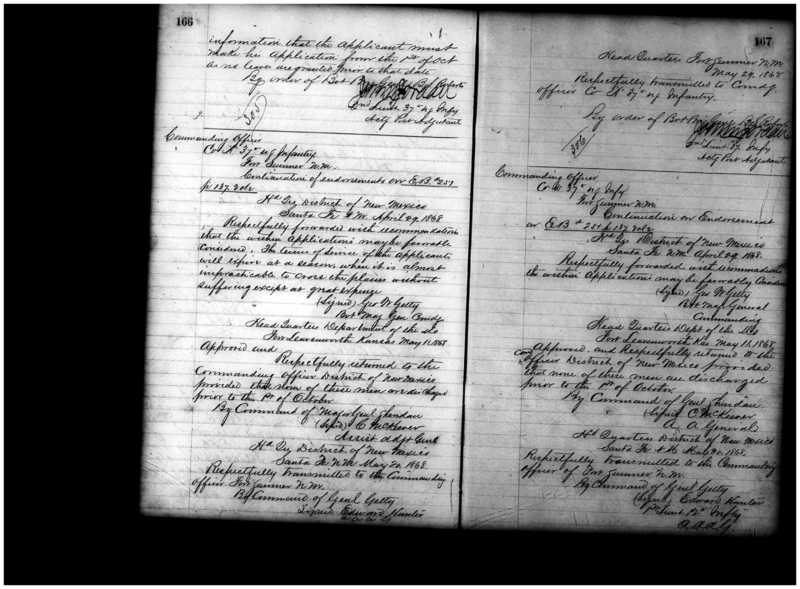 166
information that the Applicant must
make his Application from the 1st of Oct
as no leaves are granted prior to that date
By order of Bvt
2nd Lieut. 37" Inf'y
Actg Post Adjutant
305
Commanding Officer
Co 37" Infantry
Fort Sumner N.M.
Continuation of endorsements on E.B. #257
p 137. vol 2
Hd Qrs District of New Mexico
Santa Fe N.M. April 29. 1868
Respectfully forwarded with recommendation
that the within Applications may be favorable
Considered. The terms of Service of the applicants
will expire at a season when it is almost
impracticable to cross the plains without
suffering except at great expense
(Signed) Geo W Getty
Bvt Maj Genl Comdg
Head Quarters Department of the Mo
Fort Leavenworth Kansas May 11. 1868
Approved and
Respectfully returned to the
Commanding Officer District of New Mexico
provided that none of these men are discharged
prior to the 1st of October
By Command of Major Genl Sheridan
(Sign'd) C McKeever
Assist Adgt Genl
Hd Qrs District of New Mexico
Santa Fe N.M. May 20. 1868.
Respectfully transmitted to the Commanding
officer Fort Sumner N.M.
By Command of Genl Getty
Signed Edward Hunter
167
Head Quarters Fort Sumner N.M.
May 29. 1868
Respectfully transmitted to Comdg.
officer Co 37" Infantry.
By order of Bvt
2nd Lieut 37 Inf'y
Actg Post Adjutant
306
Commanding Officer
Co 37" Inf'y
Fort Sumner N.M.
Continuation on Endorsement
on E.B # 254 p 137 vol 2
Hd Qrs District of New Mexico
Santa Fe N.M. April 29. 1868.
Respectfully forwarded with recommendation
the within Applications may be favorably
(Signed) Geo W Getty
Bvt Maj General
Commanding
Head Quarters Dept of the Mo
Fort Leavenworth Kas May 11. 1868.
Approved. and Respectfully returned to the
Comdg Officer District of New Mexico provided
that none of these men are discharged
prior to the 1st of October
By Command of Genl Sheridan
(Signed) C. McKeever
A. A General
Hd Quarters District of New Mexico
Santa Fe N.M. 20. 1868.
Respectfully transmitted to the Commanding
officer of Fort Sumner N.M.
By Command of Genl Getty
(Signed) Edward Hunter
1st Lieut 12" Inf'y
A.A.A.G.